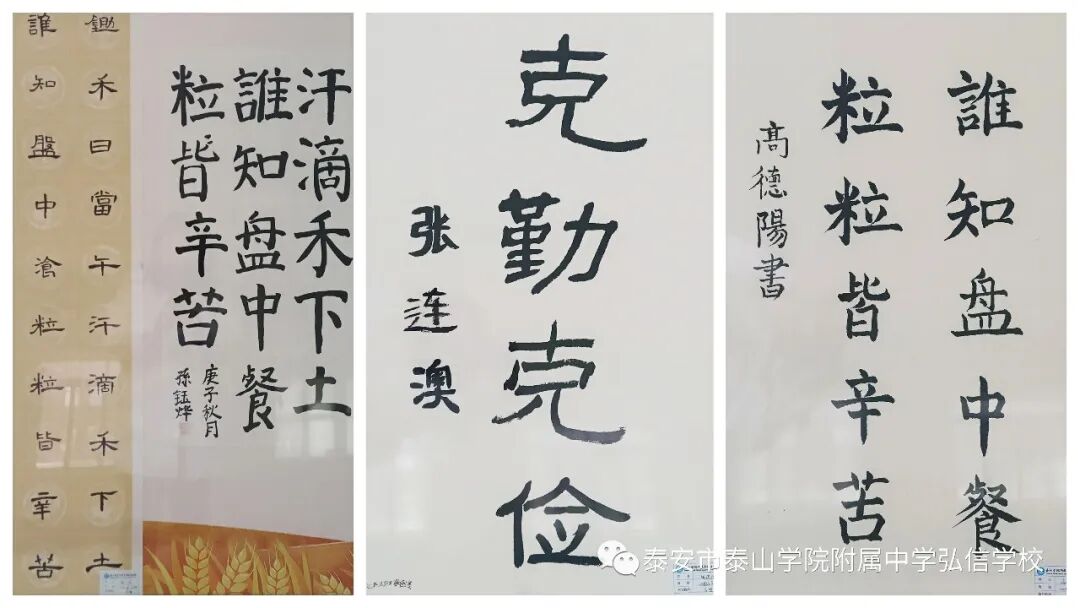 鋤禾日當午汗滴禾下土
誰知盤中飡粒粒皆辛苦
汗滴禾下土
誰知盘中餐
粒粒皆辛苦
庚子秋月
孫鈺烨
克勤克俭
张连澳
誰知盘中餐
粒粒皆辛苦
高德陽書
泰安市泰山学院附属中学弘信学校